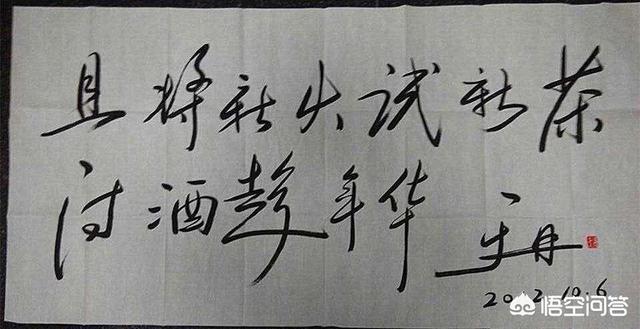 且将新火试新茶
诗酒趁年华 于丹
2012.10.6
悟空问答